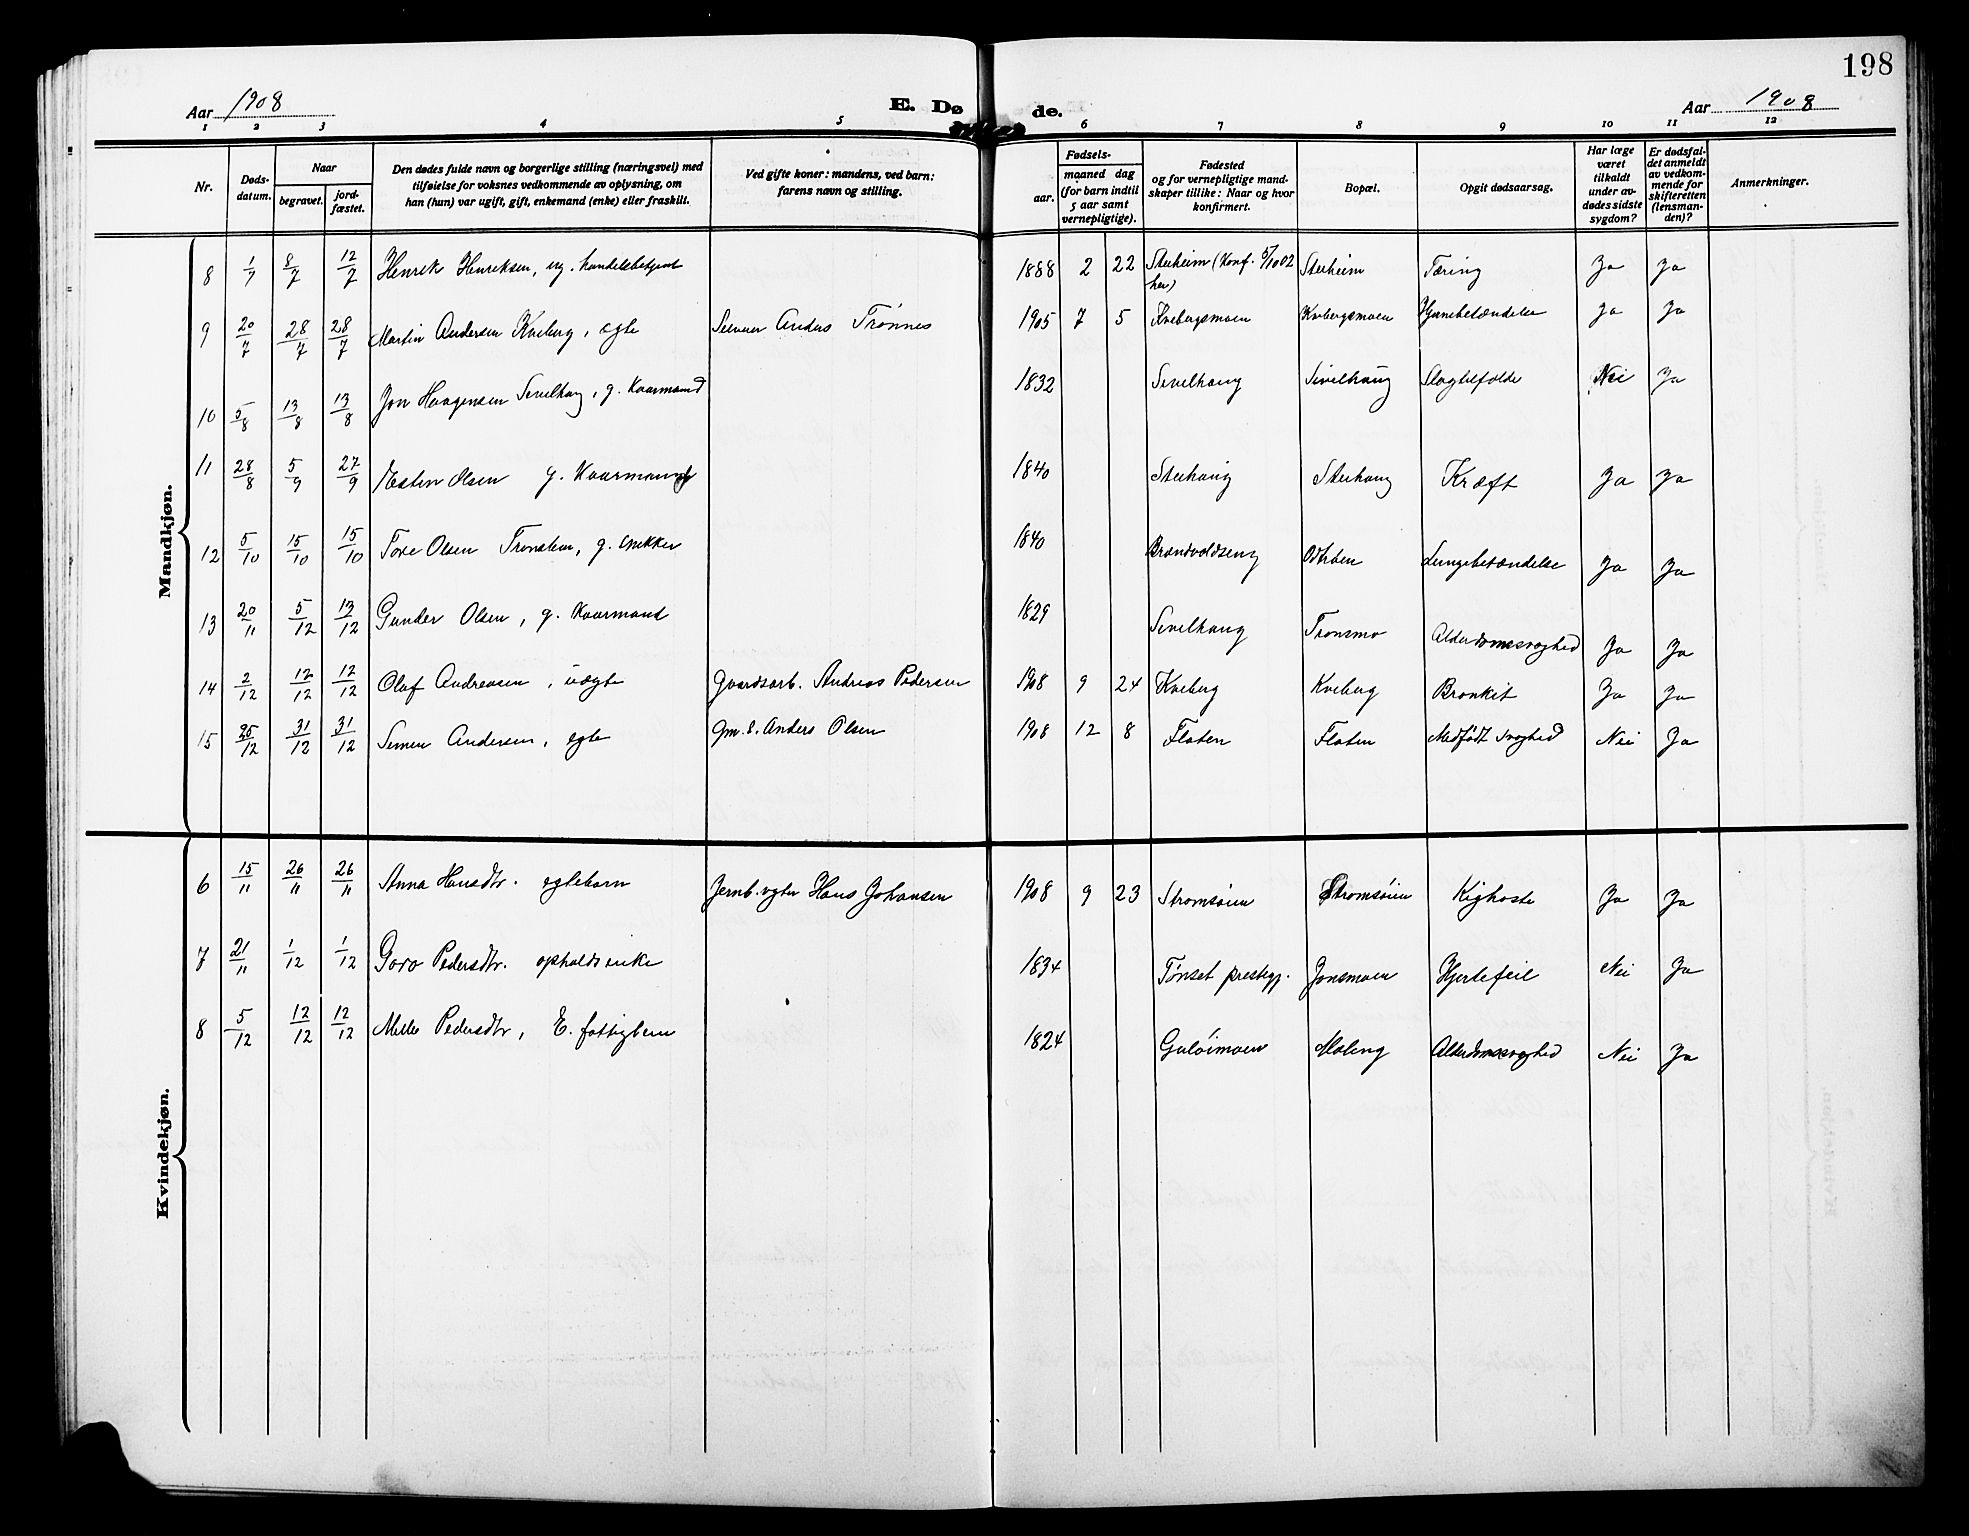 198
Aar 1908 E. Døde. Aar 1908
1 2 3 4 5 6 7 8 9 10 11 12
Nr. Døds-datum. Naar begravet. jord-fæstet. Den dødes fulde navn og borgerlige stilling (næringsvei) med tilføielse for voksnes vedkommende av oplysning, om han (hun) var ugift, gift, enkemand (enke) eller fraskilt. Ved gifte koner: mandens, ved barn: farens navn og stilling. Fødsels- aar. maaned dag (for barn indtil 5 aar samt vernepligtige). Fødested og for vernepligtige mandskaper tillike: Naar og hvor konfirmert. Bopæl. Opgit dødsaarsag. Har læge været tilkaldt under avdødes sidste sygdom? Er dødsfaldet anmeldt av vedkommende for skifteretten (lensmanden)? Anmerkninger.
Mandkjøn.
8 1/7 8/7 12/7 Henrik Henriksen, ug. handelsbetjent 1888 2 22 Steiheim (Konf. 5/10 02 her) Steiheim Tæring Ja Ja
9 20/7 28/7 28/7 Martin Andersen Kveberg, ægte Selveier Anders Trønnes 1905 7 5 Kvebergsmoen Kvebergsmoen Hjernebetændelse Ja Ja
10 5/8 13/8 13/8 Jon Haagensen Sivilhaug, g. Kaarmand 1832 Sivilhaug Sivilhaug Slagtilfælde Nei Ja
11 28/8 5/9 27/9 Esten Olsen g. Kaarmand 1840 Steihaug Steihaug Kræft Ja Ja
12 5/10 15/10 15/10 Tore Olsen Tronslien, g. snekker 1840 Brandvoldseng Lungebetændelse Ja Ja
13 20/11 5/12 13/12 Gunder Olsen, g. Kaarmand 1829 Sivilhaug Tronsmo Alderdomssvaghed Ja Ja
14 2/12 12/12 12/12 Olaf Andreasen, uægte Gaardsarb. Andreas Pedersen 1908 9 24 Kveberg Kveberg Bronkit Ja Ja
15 25/12 31/12 31/12 Simen Andersen, egte Gm. s. Anders Olsen 1908 12 8 Flaten Flaten Medfødt svaghed Nei Ja
Kvindekjøn.
6 15/11 26/11 26/11 Anna Hansdtr. egtebarn Jernb.vogter Hans Johansen 1908 9 23 Strømsøien Strømsøien Kighoste Ja Ja
7 21/11 1/12 1/12 Goro Pedersdtr. opholdsenke 1834 Tønset prestegj. Jonsmoen Hjertefeil Nei Ja
8 5/12 12/12 12/12 Pedersdtr, E. fattiglem 1824 Guløimoen Moleng Alderdomssvaghed Nei Ja